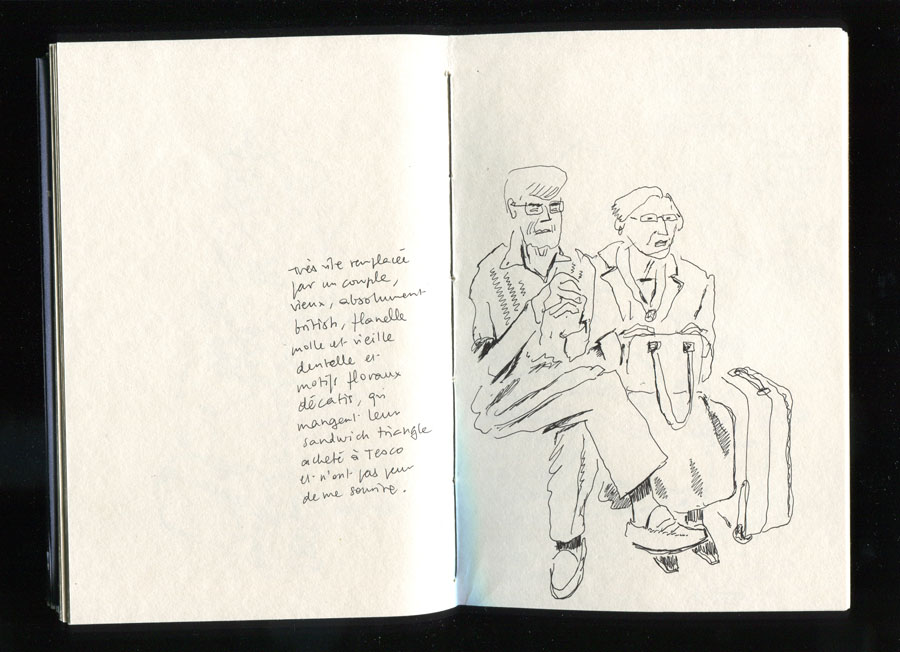 très vite remplacée
par un couple,
vieux, absolument
british, flanelle
molle et vieille
dentelle et
motifs floraux
décatis, qui
mangent leur
sandwich triangle
acheté à Tesco
et n'ont pas peur
de me sourire.